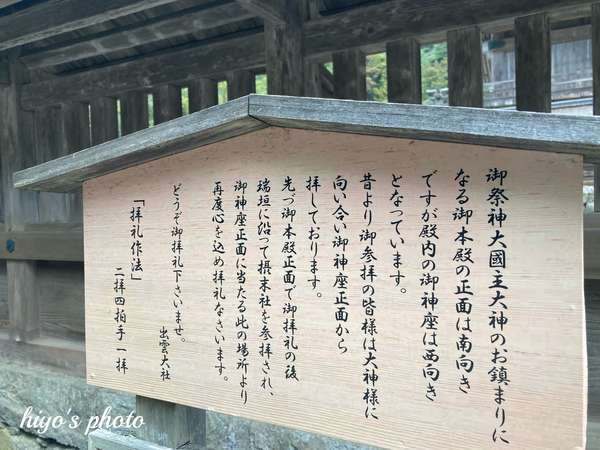 御祭神大國主大神のお鎮まりに
なる御本殿の正面は南向き
ですが殿内の御神座は西向き
となっています。
昔より御参拝の皆様は大神様に
向い合い御神座正面から
拝しております。
先づ御本殿正面で御拝礼の後
瑞垣に沿って摂末社を参拝され、
御神座正面に当たる此の場所より
再度心を込め拝礼なさいます。
どうぞ御拝礼下さいませ。
出雲大社
「拝礼作法」
二拝四拍手一拝
hiyo's photo